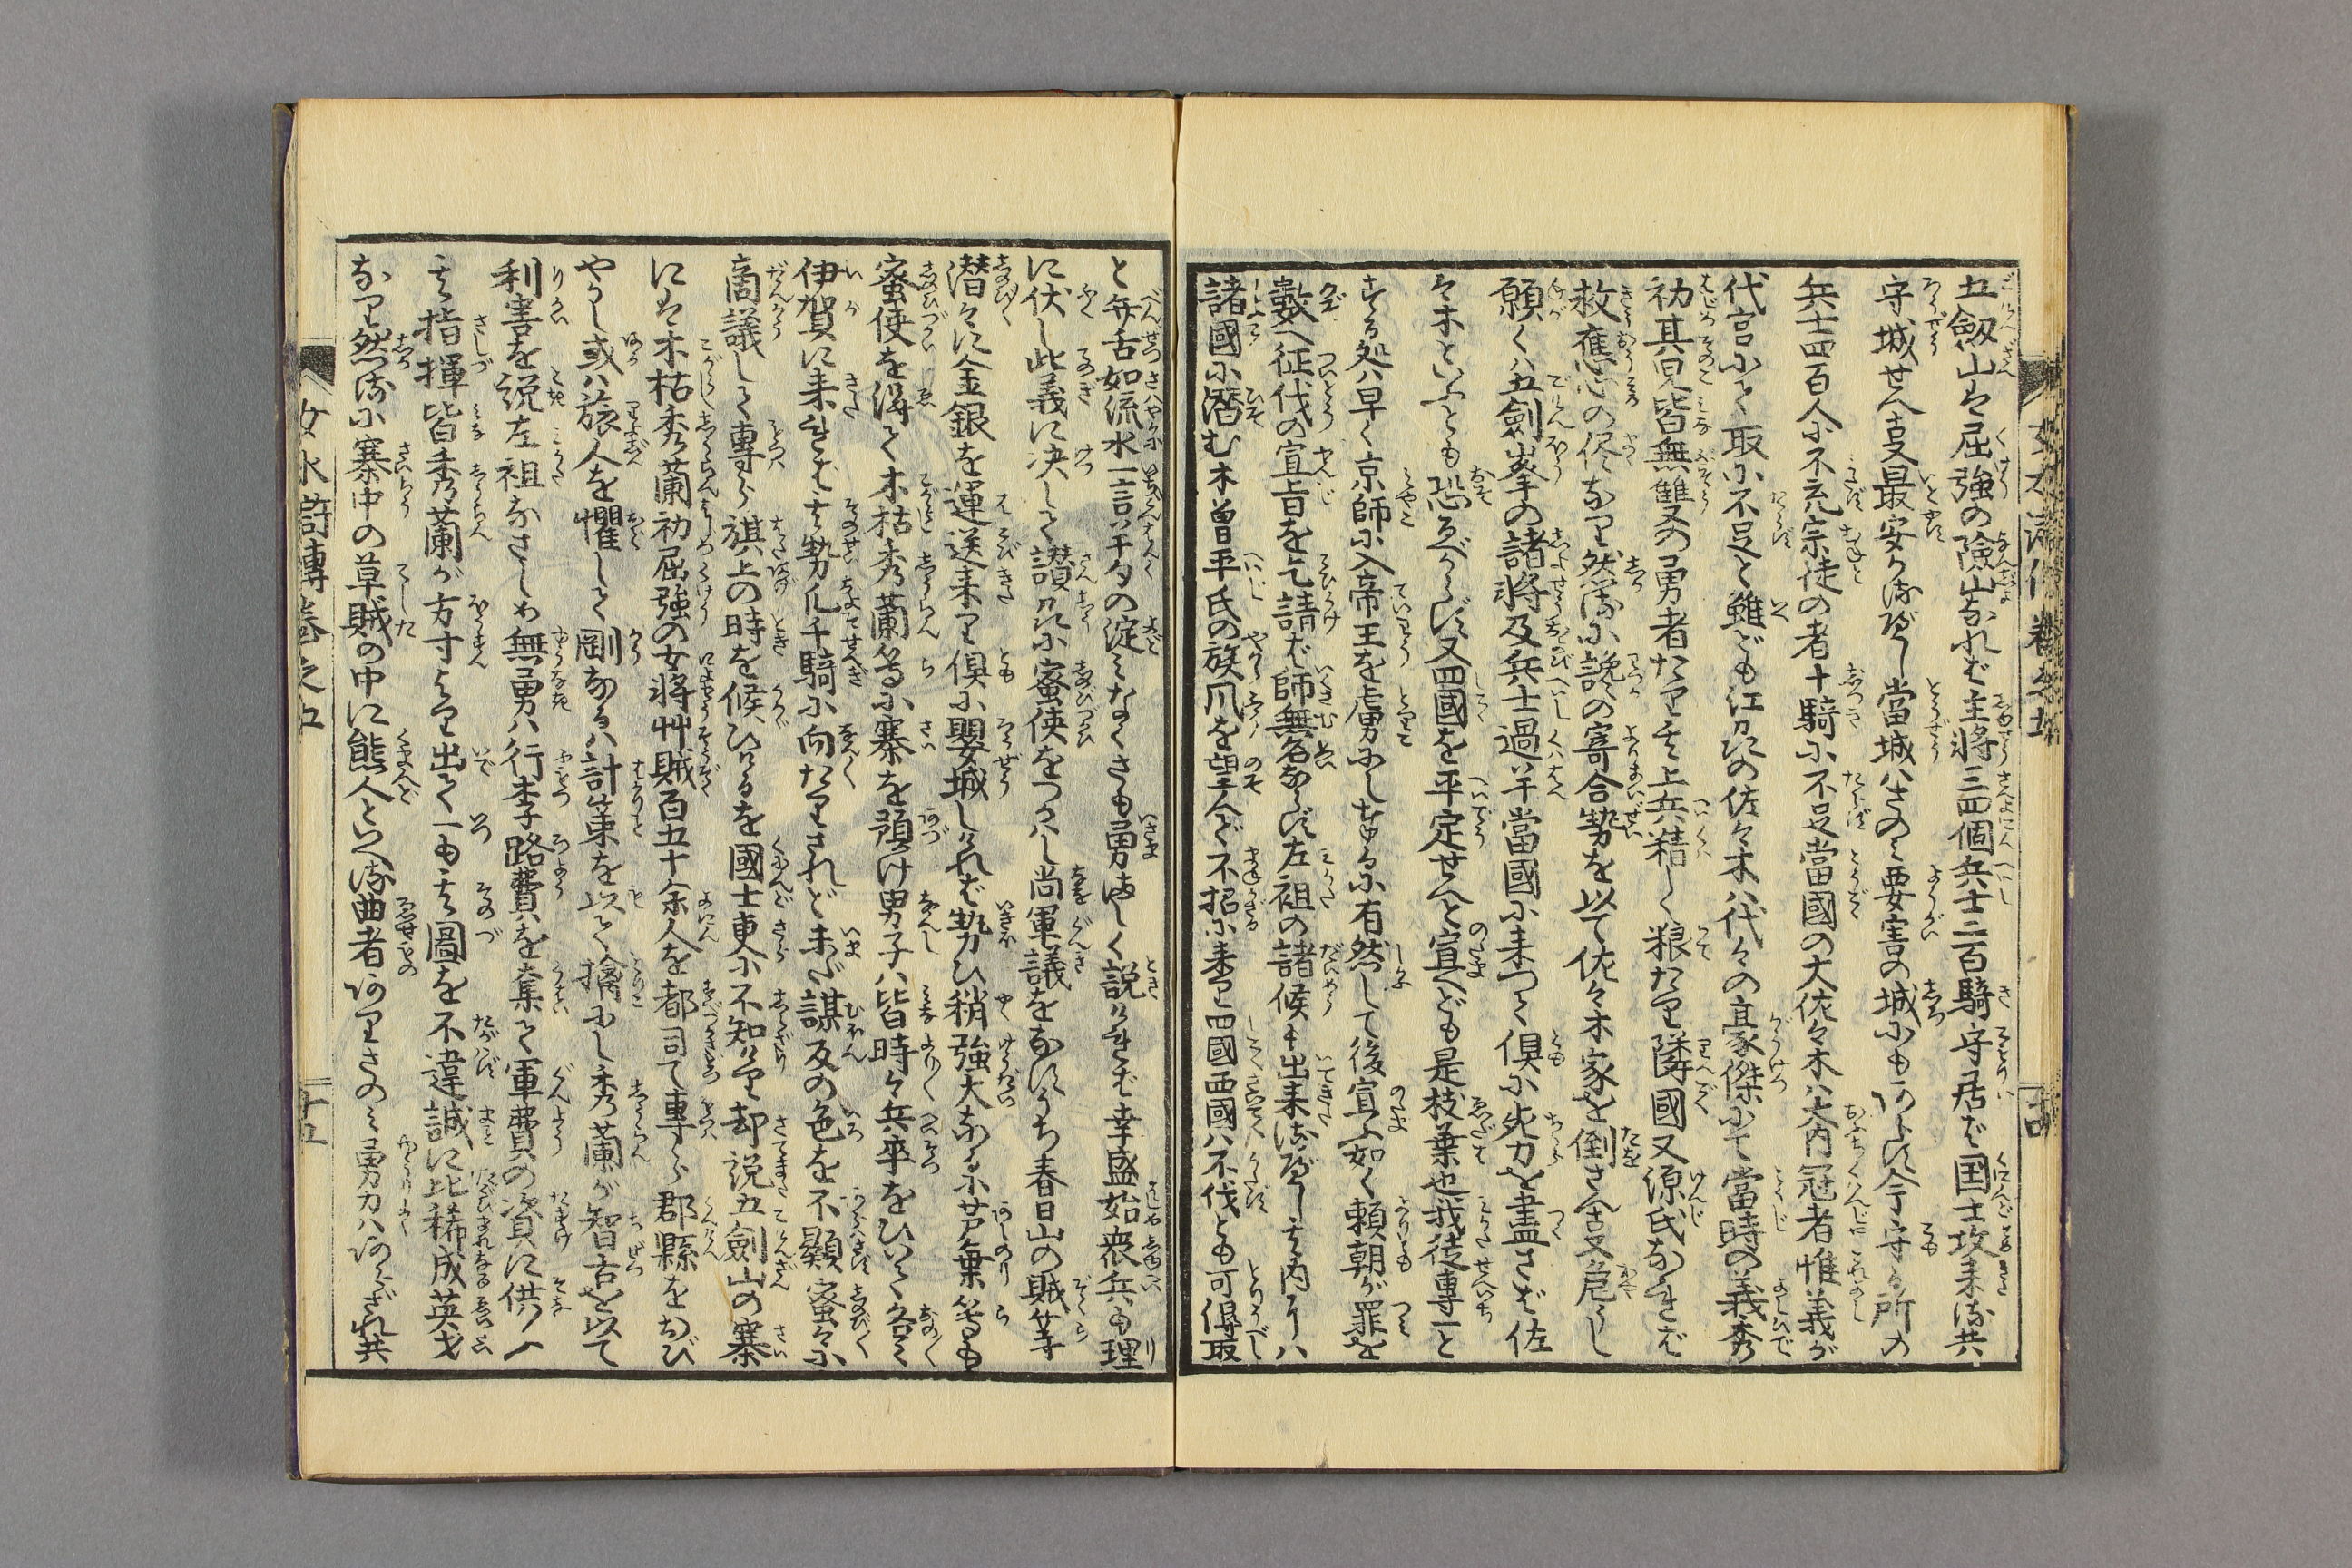 五劔山は屈強の險山なれば主將三四個兵士二百騎守居ば国士攻来る共
守城せん㕝最安かるべし當城はさのみ要害の城にもあらず今守る所の
兵士四百人に不充宗徒の者十騎に不足當國の大佐々木は大内冠者惟義が
代官にて取に不足と雖ども江刕の佐々木は代々の豪傑にて當時の義秀
初其兒皆無雙の勇者たり其上兵精しく粮たり隣國又源氏なれば
救應心の侭なり然るに纔の寄合勢を以て佐々木家を倒さん㕝危うし
願くは五劍峯の諸將及兵士過半當國に来つて倶に死力を盡さば佐
々木といふとも恐るべからず又四國を平定せんと宣へども是枝葉也我徒專一と
する処は早く京師に入帝王を虜にし奉るに有然して後宣ふ如く頼朝が罪を
數へ征伐の宣旨を乞請ば師無名ならず左袒の諸候も出来るべし其内には
諸國に潜む木曽平氏の族爪を望んで不招に来り四國西國は不伐とも可得取
と弁舌如流水一言半句の淀みなくさも勇ましく説ければ幸盛始衆兵も理
に伏し此義に決して讃刕に蜜使をつかはし尚軍議をなすうち春日山の賊等
潜々に金銀を運送来り倶に嬰城しければ勢ひ稍強大なるに芦葉等も
蜜使を得て木枯秀蘭等に寨を預け男子は皆時々兵卒をひいて各々
伊賀に来れば其勢凡千騎に向たりされど未だ謀反の色を不顯蜜々に
商議して專ら旗上の時を候ひけるを國士更に不知けり却説五劍山の寨
には木枯秀蘭初屈強の女將艸賊百五十余人を都司て專ら郡縣をおび
やかし或は旅人を懼して剛なるは計策を以て擒にし秀蘭が智舌を以て
利害を説左袒なさしめ無勇は行李路費を奪て軍費の資に供ん
其指揮皆秀蘭が方寸より出て一も其圖を不違誠に比稀成英才
なり然るに寨中の草賊の中に熊人といへる曲者ありさのみ勇力はあらざれ共
女水滸傳巻之五
十五